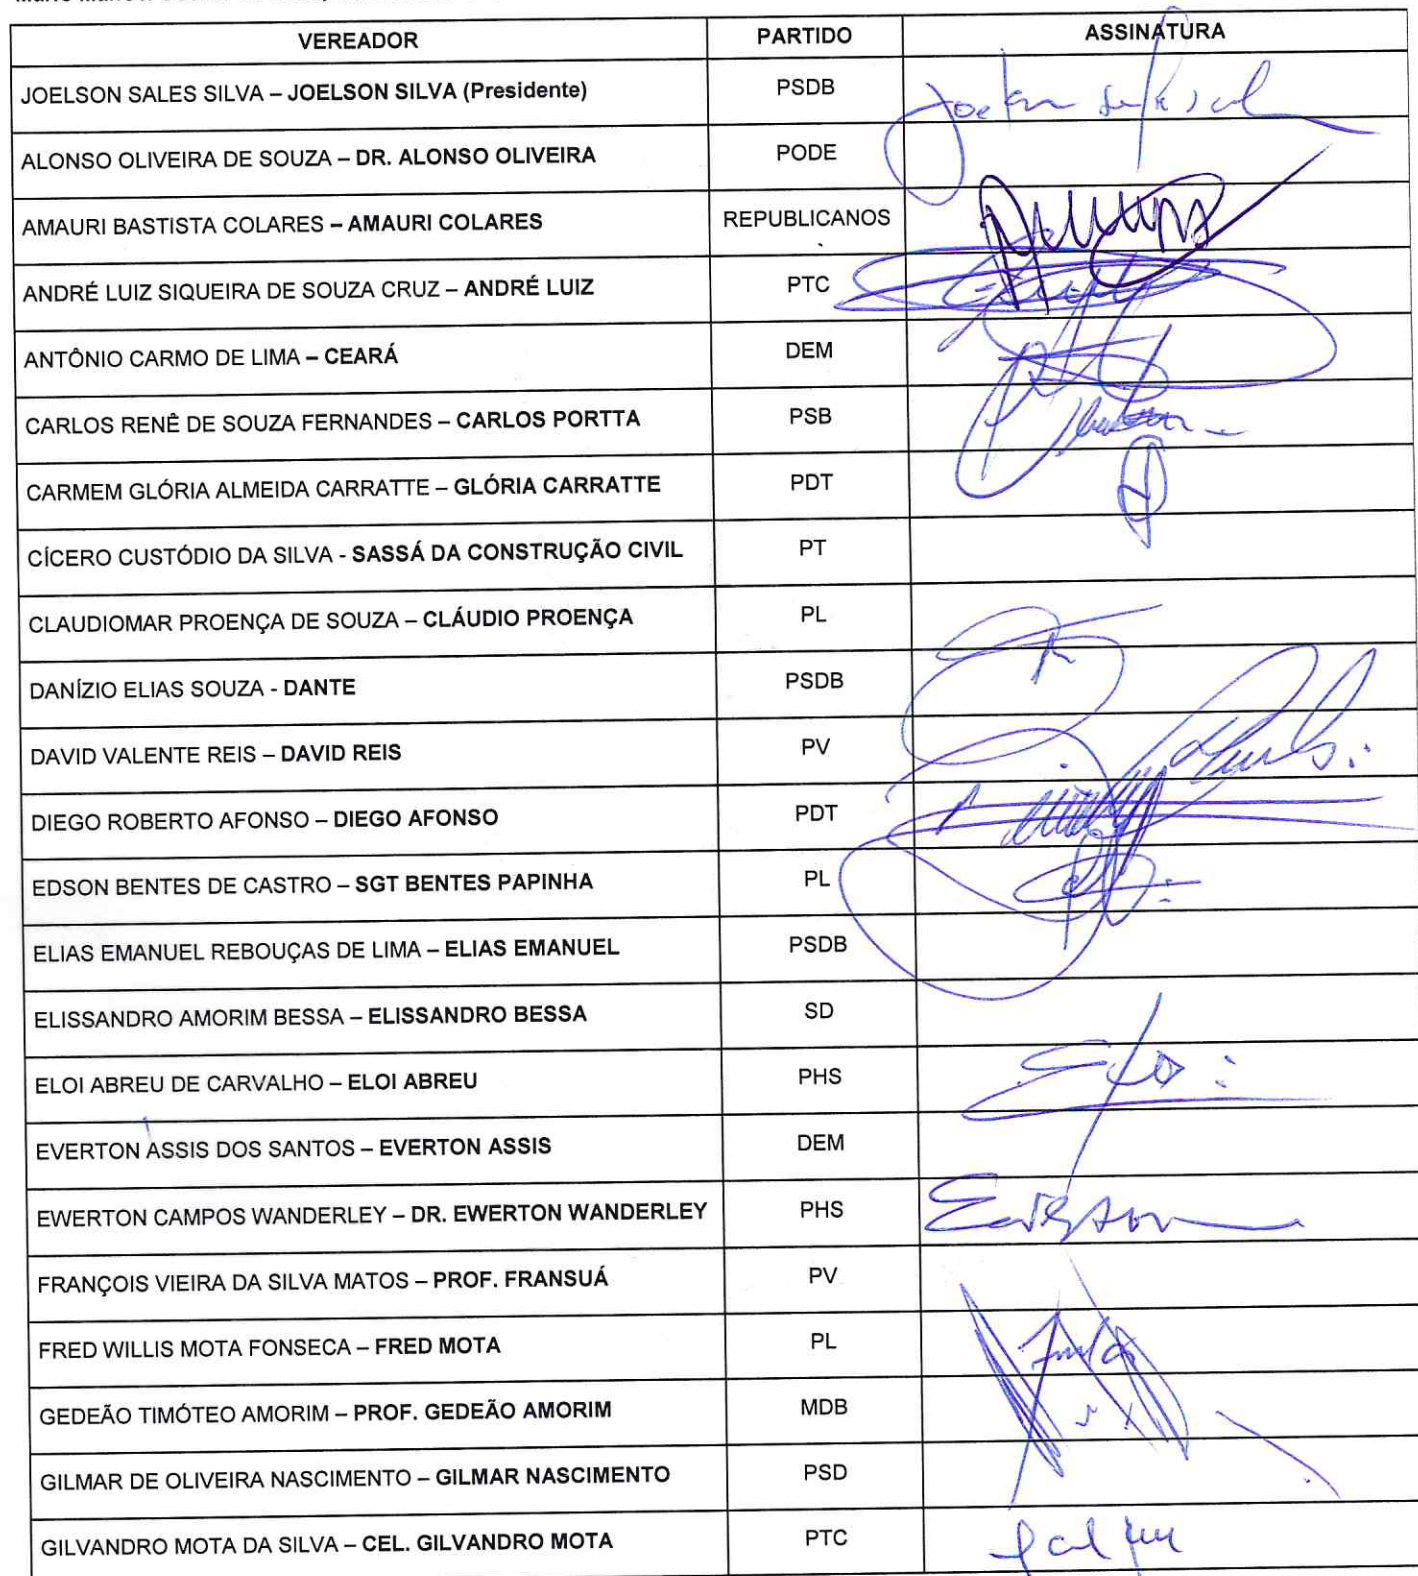 VEREADOR PARTIDO ASSINATURA
JOELSON SALES SILVA – JOELSON SILVA (Presidente) PSDB
ALONSO OLIVEIRA DE SOUZA – DR. ALONSO OLIVEIRA PODE
AMAURI BASTISTA COLARES – AMAURI COLARES REPUBLICANOS
ANDRÉ LUIZ SIQUEIRA DE SOUZA CRUZ – ANDRÉ LUIZ PTC
ANTÔNIO CARMO DE LIMA – CEARÁ DEM
CARLOS RENÊ DE SOUZA FERNANDES – CARLOS PORTTA PSB
CARMEM GLÓRIA ALMEIDA CARRATTE – GLÓRIA CARRATTE PDT
CÍCERO CUSTÓDIO DA SILVA - SASSÁ DA CONSTRUÇÃO CIVIL PT
CLAUDIOMAR PROENÇA DE SOUZA – CLÁUDIO PROENÇA PL
DANÍZIO ELIAS SOUZA - DANTE PSDB
DAVID VALENTE REIS – DAVID REIS PV
DIEGO ROBERTO AFONSO – DIEGO AFONSO PDT
EDSON BENTES DE CASTRO – SGT BENTES PAPINHA PL
ELIAS EMANUEL REBOUÇAS DE LIMA – ELIAS EMANUEL PSDB
ELISSANDRO AMORIM BESSA – ELISSANDRO BESSA SD
ELOI ABREU DE CARVALHO – ELOI ABREU PHS
EVERTON ASSIS DOS SANTOS – EVERTON ASSIS DEM
EWERTON CAMPOS WANDERLEY – DR. EWERTON WANDERLEY PHS
FRANÇOIS VIEIRA DA SILVA MATOS – PROF. FRANSUÁ PV
FRED WILLIS MOTA FONSECA – FRED MOTA PL
GEDEÃO TIMÓTEO AMORIM – PROF. GEDEÃO AMORIM MDB
GILMAR DE OLIVEIRA NASCIMENTO – GILMAR NASCIMENTO PSD
GILVANDRO MOTA DA SILVA – CEL. GILVANDRO MOTA PTC